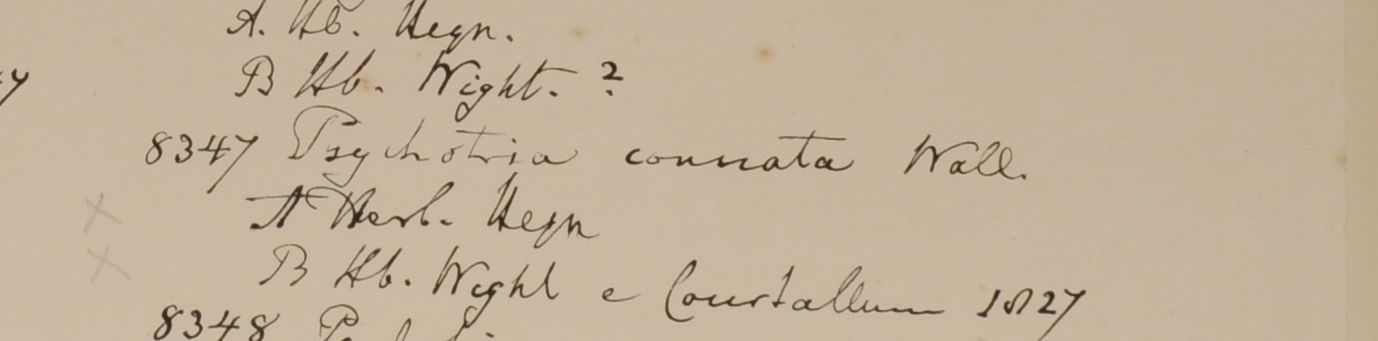 A. Hb. Heyn.
B Hb. Wight. ?
8347 Psychotria connata Wall.
A Herb. Heyn
B Hb. Wight e Courtallum 1827
8348